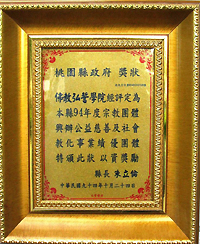 桃園縣政府 獎狀
佛教弘誓學院經評定為
本縣94年度宗教團體
興辦公益慈善及社會
教化事業績優團體
特頒此狀以資獎勵
縣長 朱立倫
中華民國九十四年十月二十四日